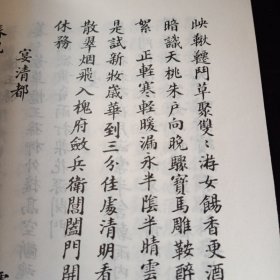 映鞦韆鬥草聚雙〻游女餳香更酒
暗識夭桃朱戶向晚驟寶馬雕鞍醉
絮 正輕寒輕暖漏永半陰半晴雲
是試新妝歲華到三分佳處清明看
散翠烟飛入槐府斂兵衛閶闔門開
休務
宴清都